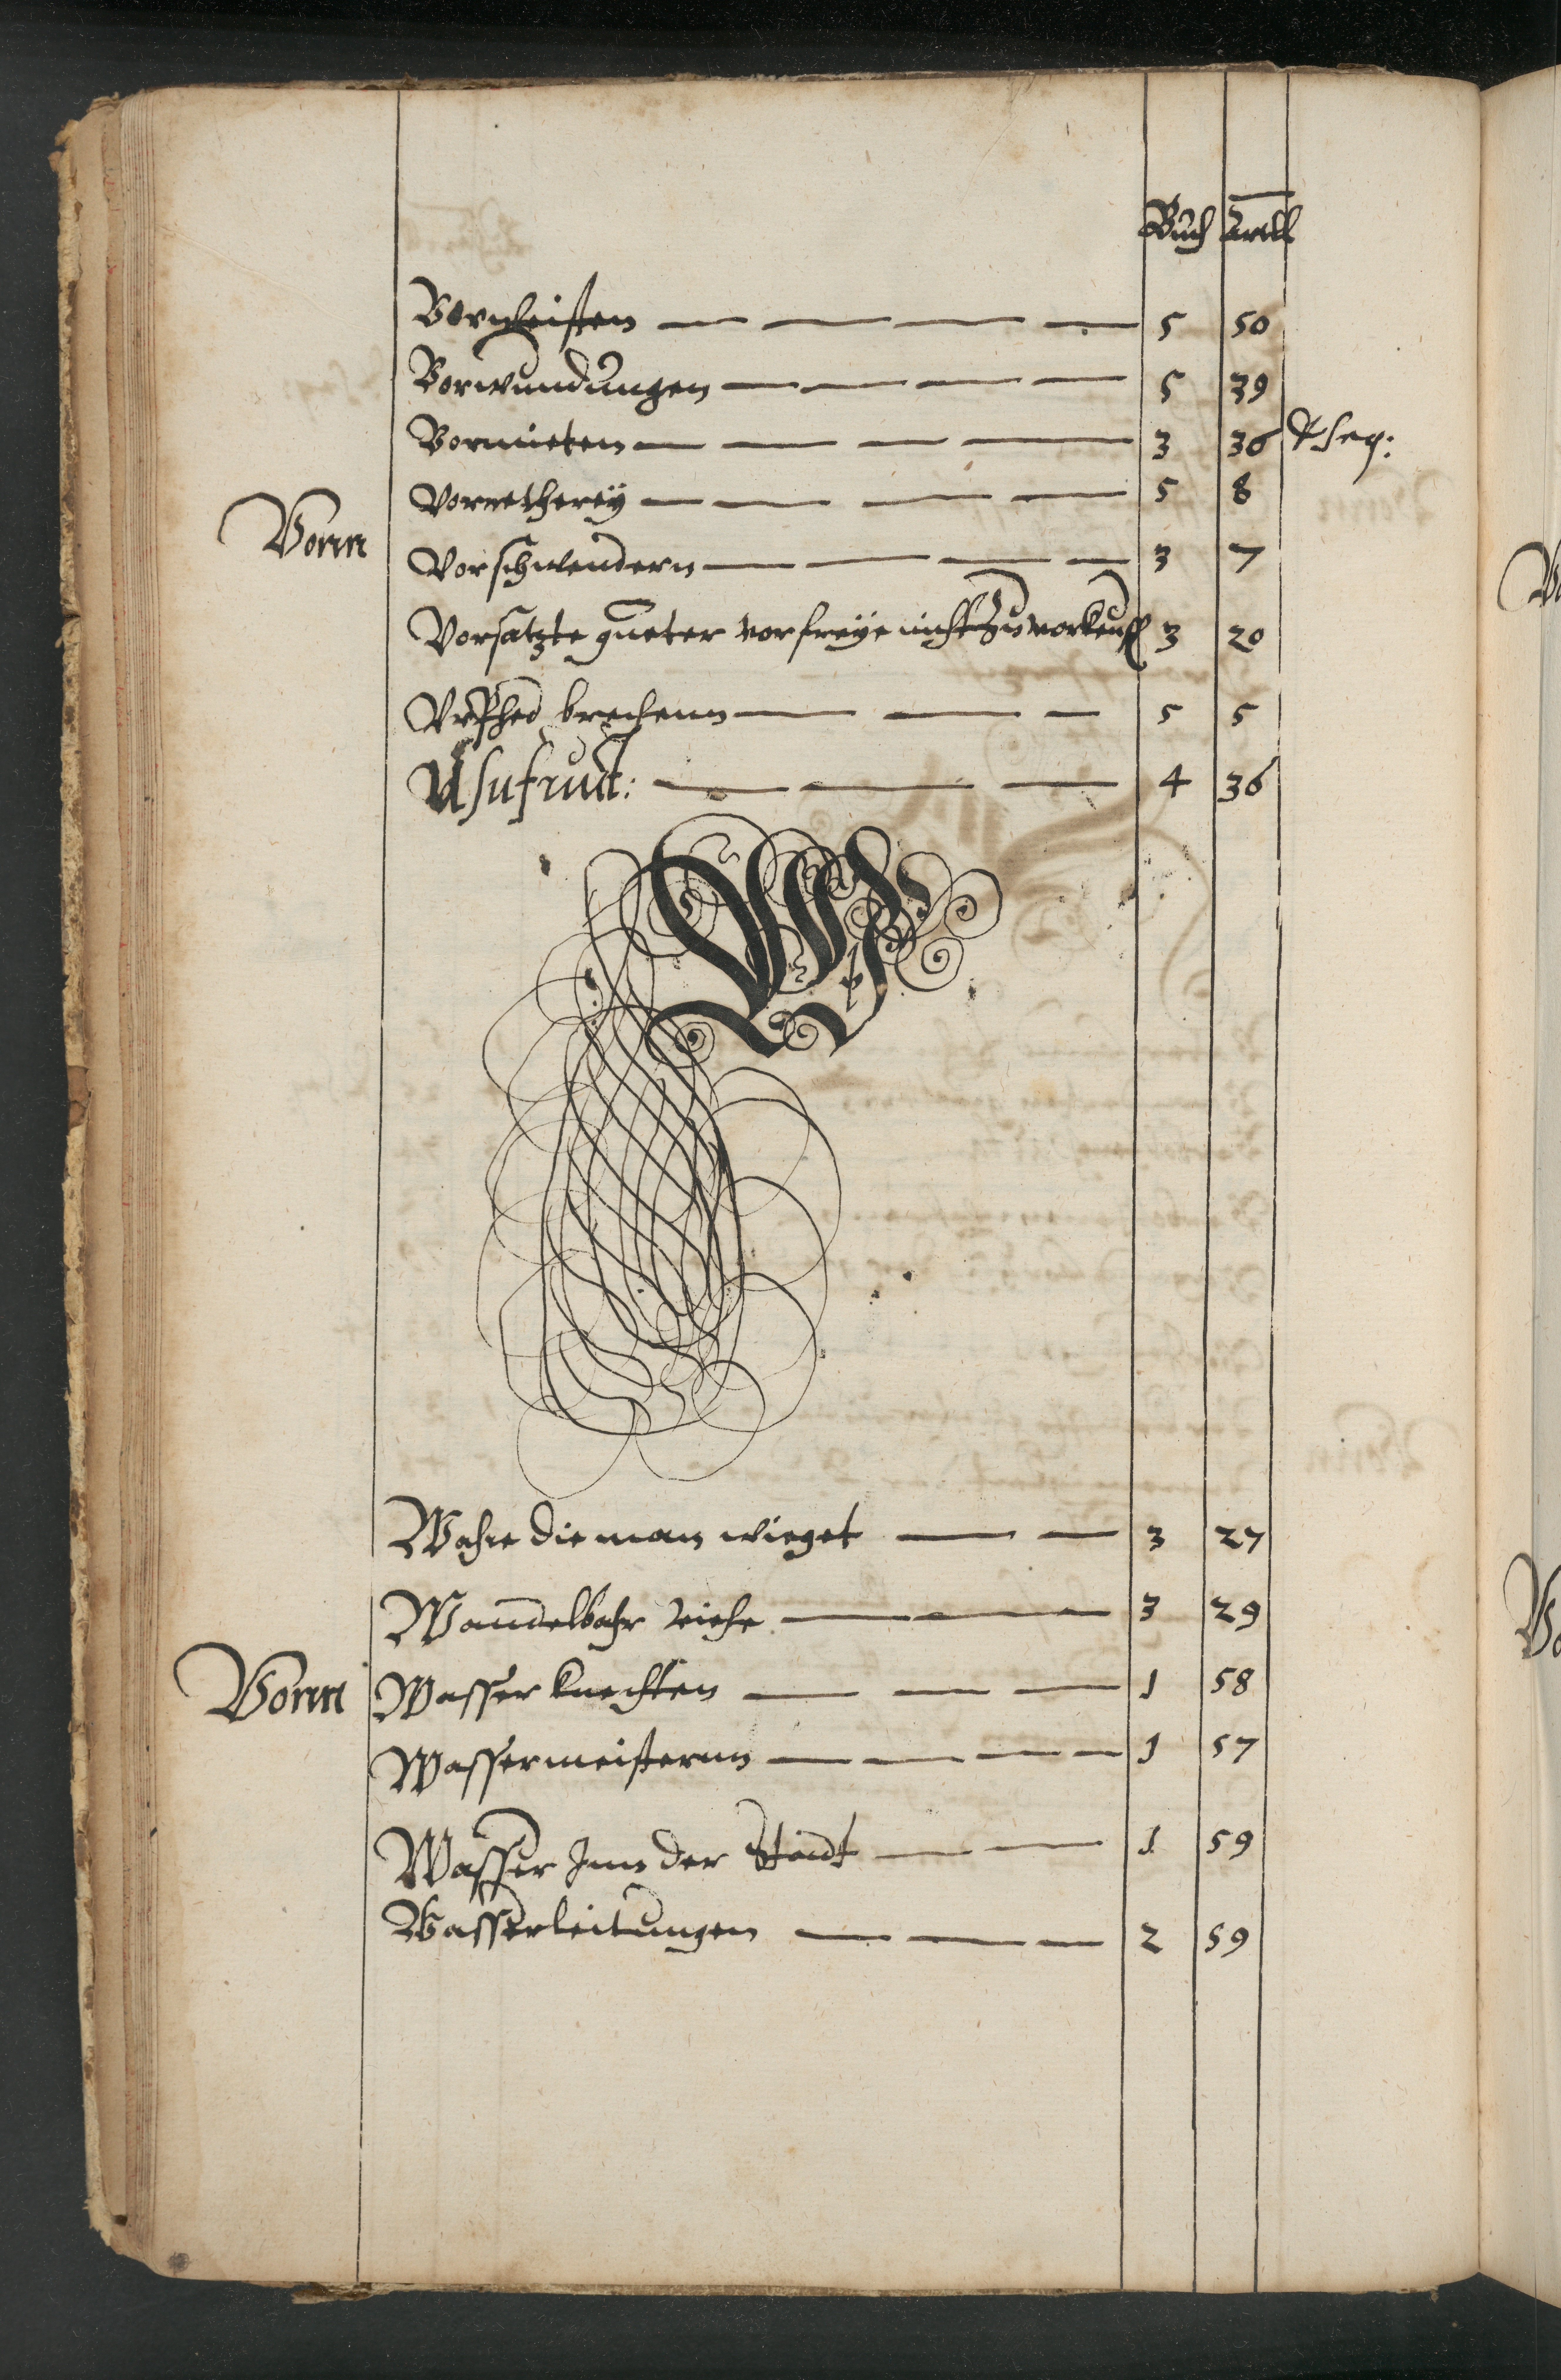 Buch Artl
Vorgleisten 5 50
Vorwundungen 5 39
Vormieten 3 36 & seq:
Vorretherey 5 8
Vonn
Vorschwendern 3 7
Vorsatzte gueter vor freye nicht zu vorkeuff 3 20
Urphed brechenn 5 5
Usufruct: 4 36
W
Wahre die man wieget 3 27
Wandelbahr viehe 3 29
Vonn Wasser knechten 1 58
Wassermeisternn 1 57
Wasser Inn der Stadt 1 59
Wasserleitungen 2 59